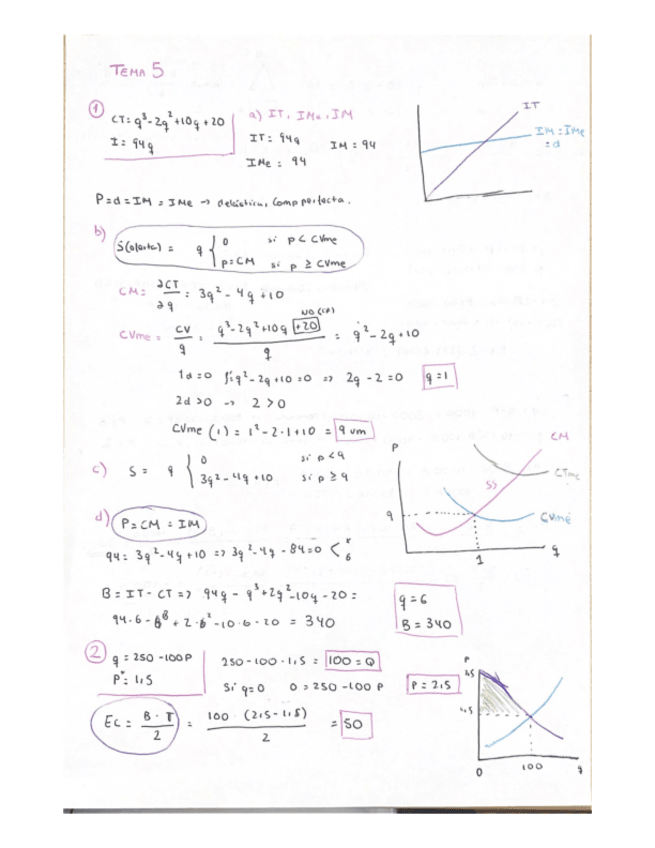 TEMA 5
① CT = q³-2q²+10q+20
I = 94q
a) IT, IMe, IM
IT = 94q
IM = 94
IMe = 94
IT
IM = IMe
= d
P = d = IM = IMe → comp perfecta.
b)
S(oferta) = q { 0 si p < CVme
p = CM si p ≥ CVme
CM = ∂CT/∂q = 3q² - 4q + 10
NO (CF)
CVme = CV/q = q³-2q²+10q +20/q = q² - 2q + 10
1d = 0 q² - 2q + 10 = 0 => 2q - 2 = 0 q = 1
2d > 0 → 2 > 0
CVme (1) = 1² - 2·1 + 10 = 9 um
c) S = q { 0 si p < 9
3q² - 4q + 10 si p ≥ 9
P
CM
CTme
SS
9
CVme
1
q
d) P = CM = IM
94 = 3q² - 4q + 10 => 3q² - 4q - 84 = 0 < x
6
B = IT - CT => 94q - q³ + 2q² - 10q - 20 =
94·6 - 6³ + 2·6² - 10·6 - 20 = 340
q = 6
B = 340
② q = 250 - 100P
P* = 1,5
250 - 100·1,5 = 100 = Q
Si q=0 0 = 250 - 100 P P = 2,5
EC = B·T/2 = 100·(2,5-1,5)/2 = 50
P
1,5
0
100
q